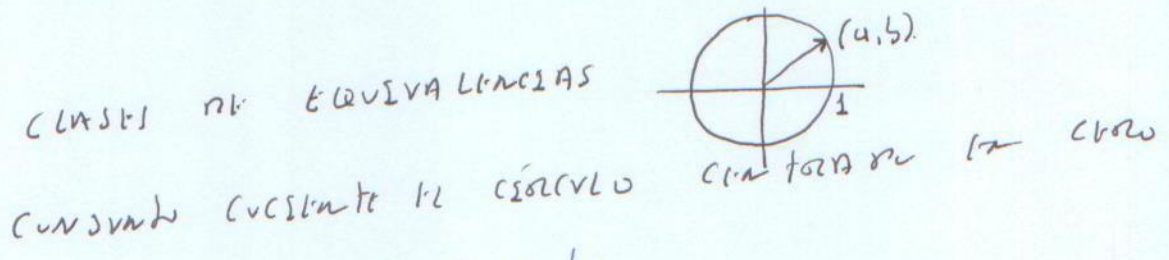 CLASES DE EQUIVALENCIAS
(a,b)
1
CONJUNTO COCIENTE EL CÍRCULO CENTRADO EN CERO